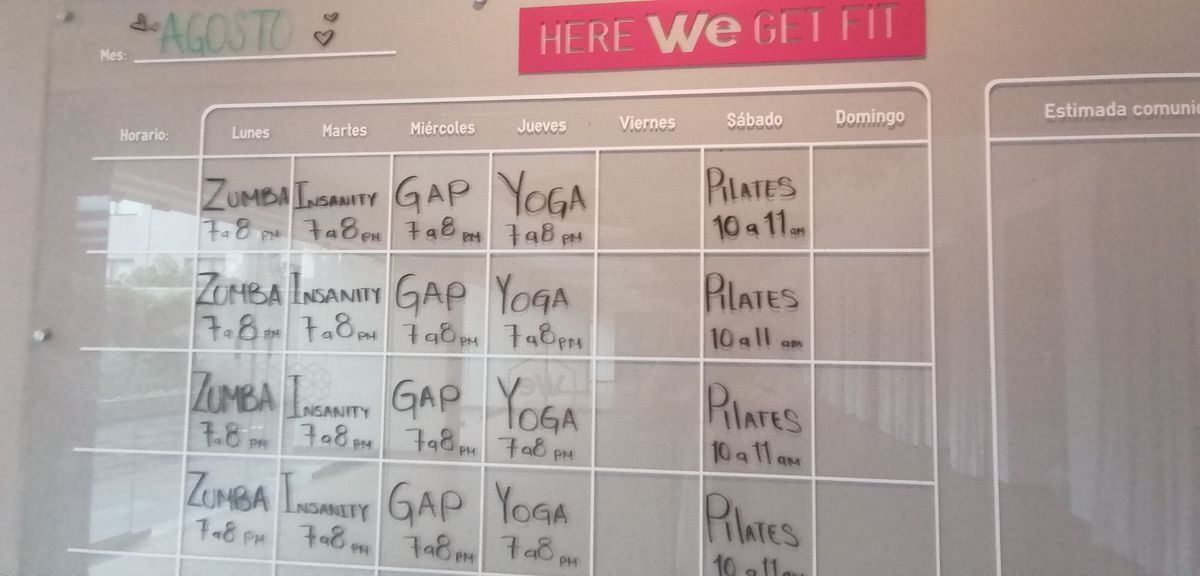 AGOSTO
HERE We GET FIT
Mes:
Horario: Lunes Martes Miércoles Jueves Viernes Sábado Domingo
Estimada
ZUMBA INSANITY GAP YOGA PILATES
7 a 8 PM 7 a 8 PM 7 a 8 PM 7 a 8 PM 10 a 11 am
ZUMBA INSANITY GAP YOGA PILATES
7 a 8 PM 7 a 8 PM 7 a 8 PM 7 a 8 PM 10 a 11 am
ZUMBA INSANITY GAP YOGA PILATES
7 a 8 PM 7 a 8 PM 7 a 8 PM 7 a 8 PM 10 a 11 am
ZUMBA INSANITY GAP YOGA PILATES
7 a 8 PM 7 a 8 PM 7 a 8 PM 7 a 8 PM 10 a 11 am